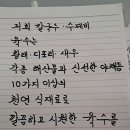 저희 칼국수 수제비
육수는
황태·디포리 새우
각종 해산물과 신선한 야채등
10가지 이상의
천연 식재료로
깔끔하고 시원한 육수를